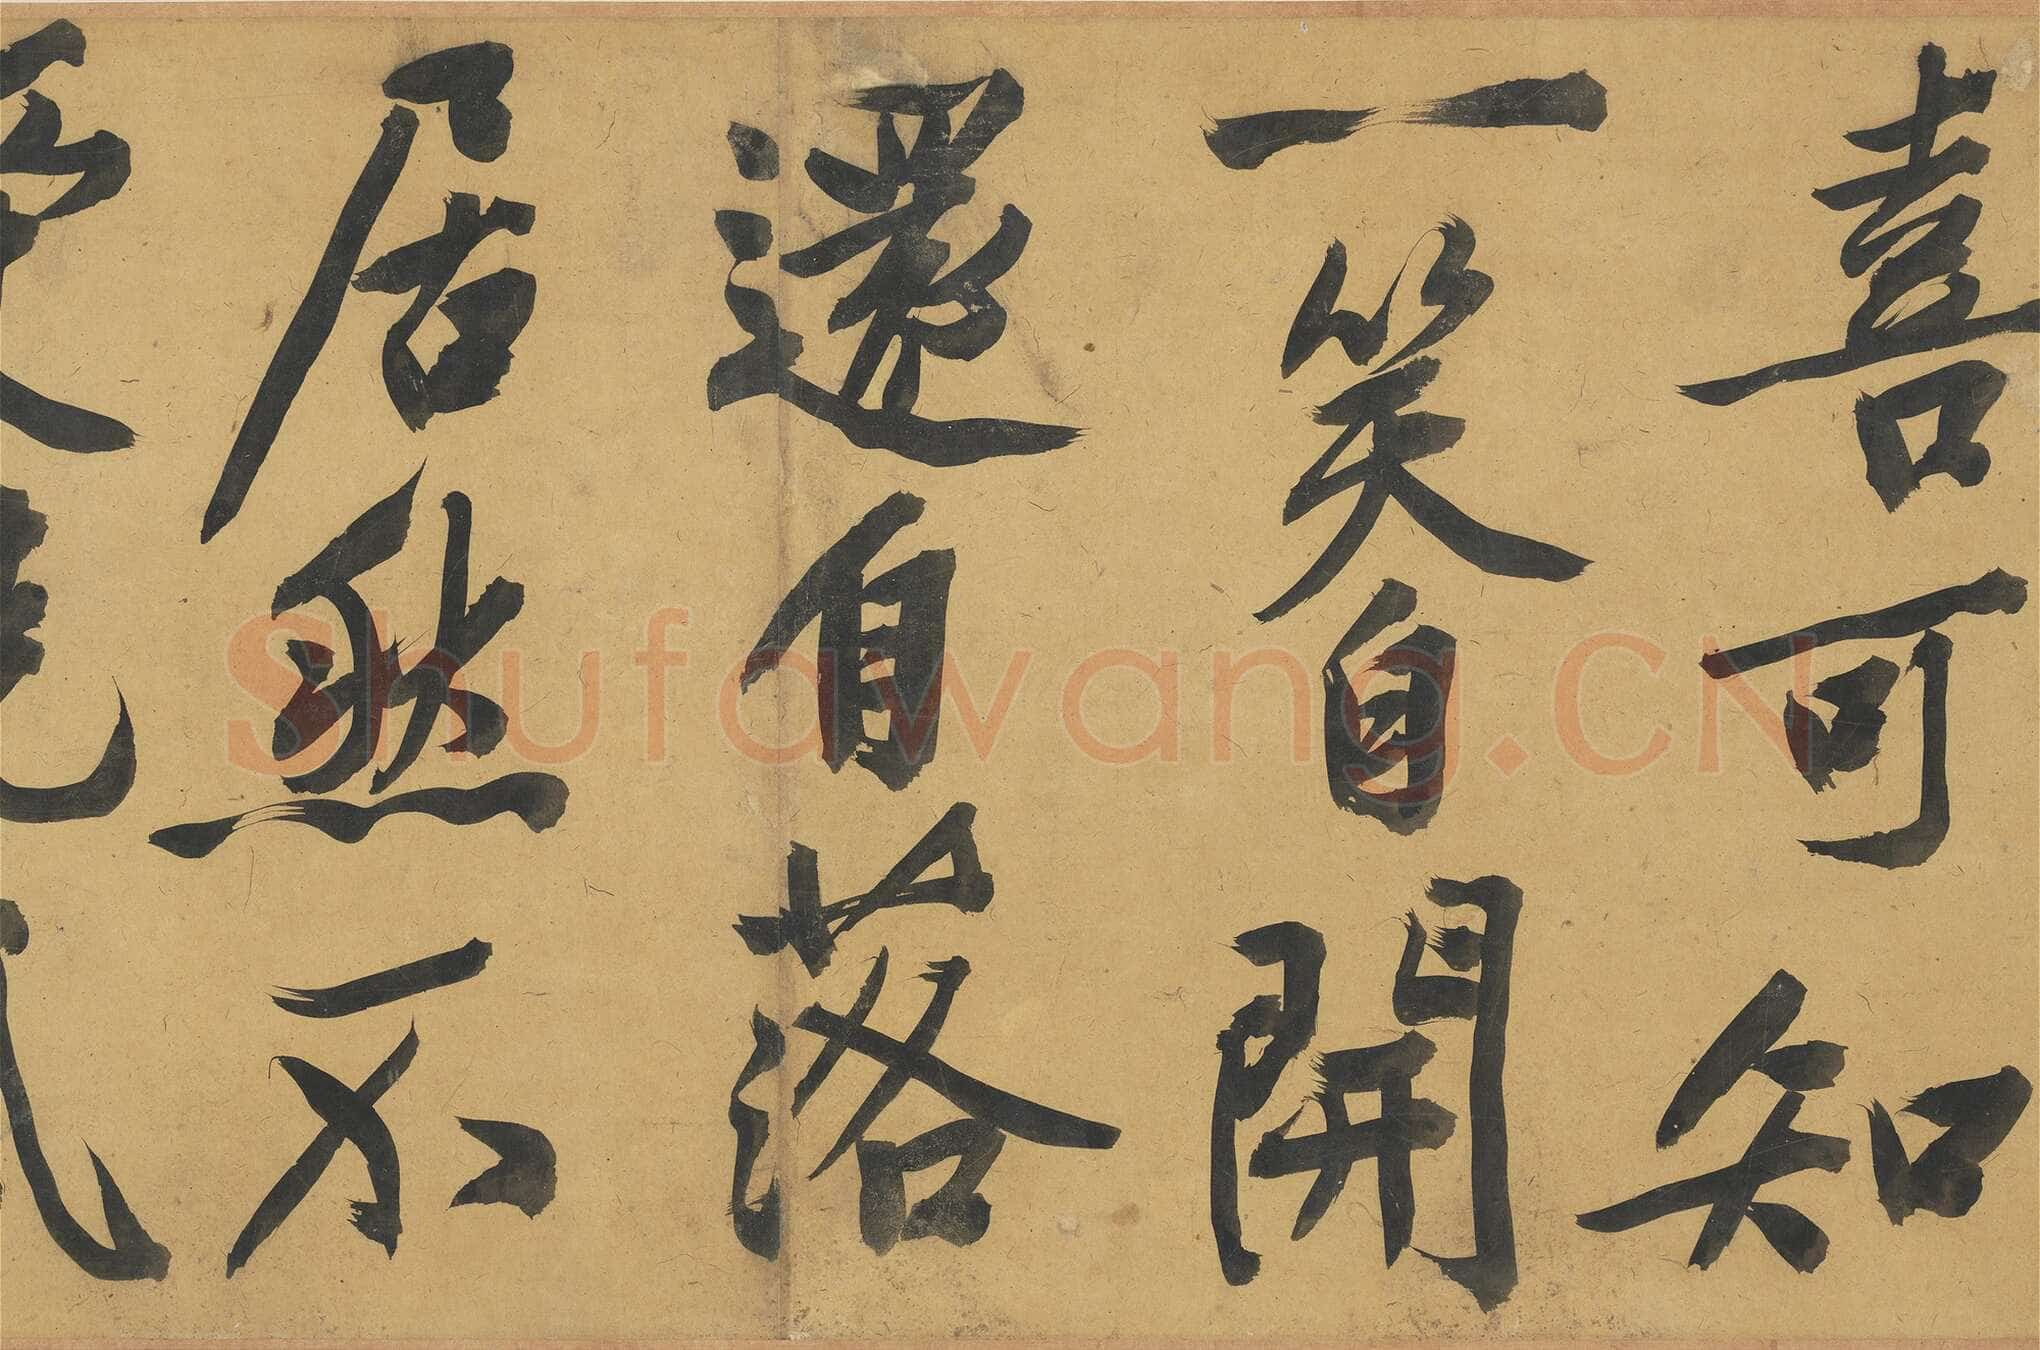 喜可知
一笑自開
還自落
居然不
Shufawang.CN